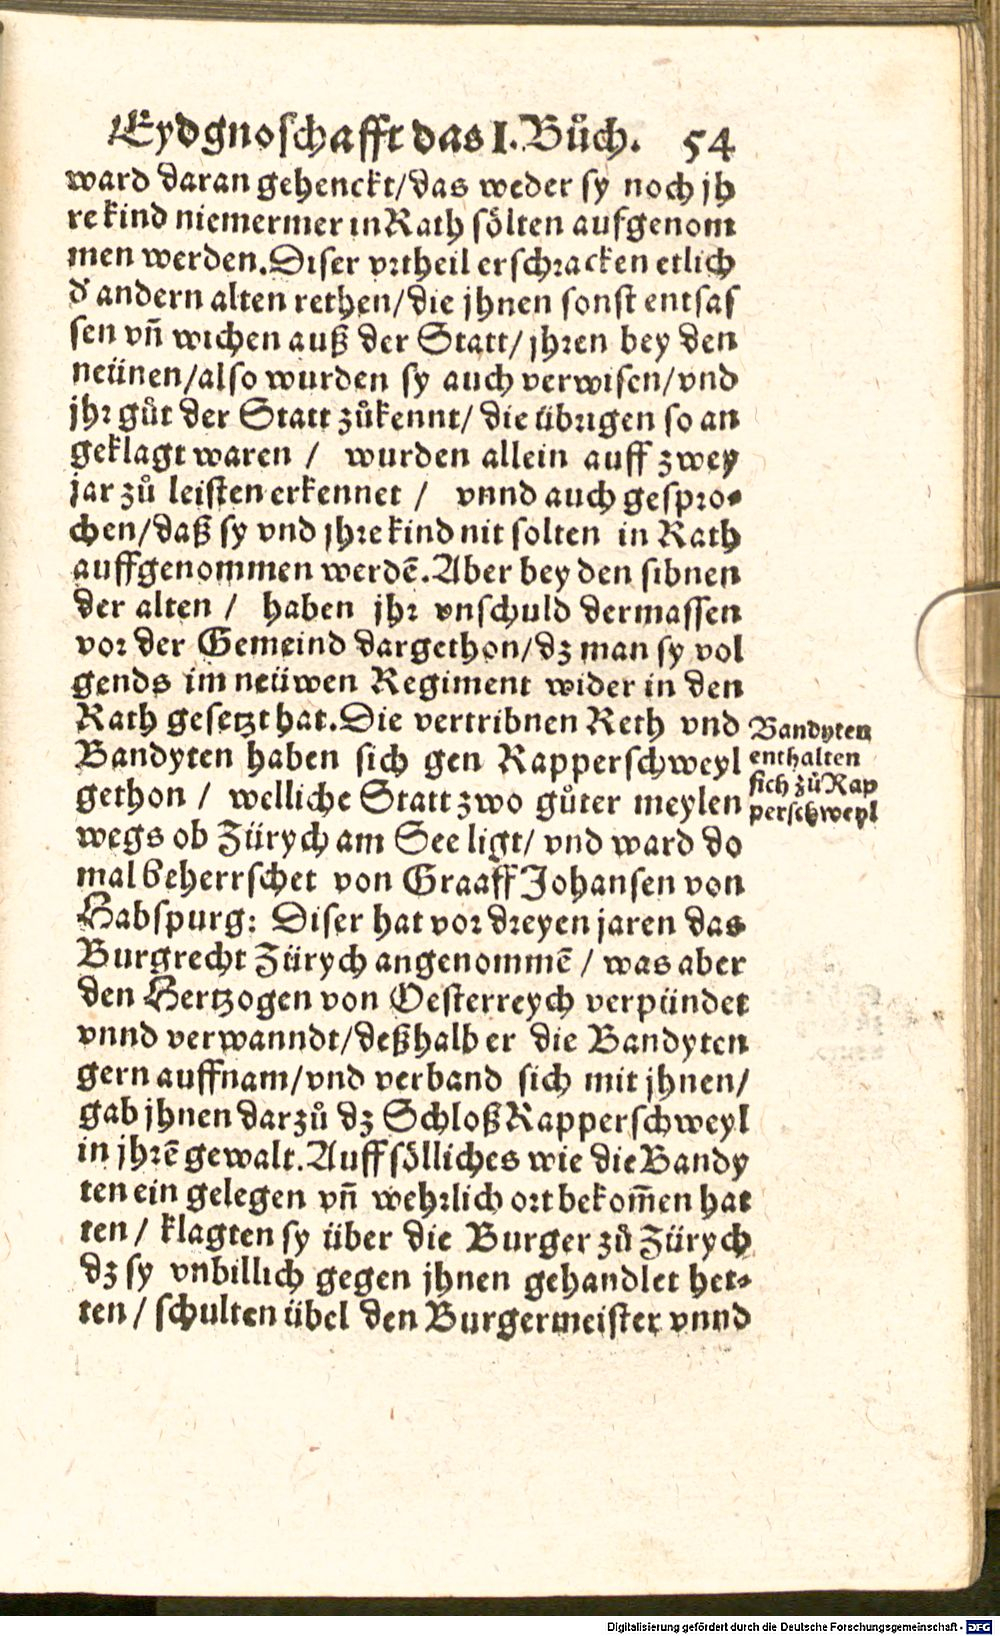 Eydgnoschafft das I. Bůch. 54
ward daran gehenckt/das weder sy noch jh
re kind niemermer in Rath sölten aufgenom
men werden. Diser vrtheil erschracken etlich
d' andern alten rethen/die jhnen sonst entsas
sen vñ wichen auß der Statt/ jhren bey den
neünen/also wurden sy auch verwisen/vnd
jhr gůt der Statt zůkennt/ die übrigen so an
geklagt waren / wurden allein auff zwey
jar zů leisten erkennet / vnnd auch gespro-
chen/daß sy vnd jhre kind nit solten in Rath
auffgenommen werdē. Aber bey den sibnen
der alten / haben jhr vnschuld dermassen
vor der Gemeind dargethon/dz man sy vol
gends im neüwen Regiment wider in den
Rath gesetzt hat. Die vertribnen Reth vnd
Bandyten haben sich gen Rapperschweyl
gethon / welliche Statt zwo gůter meylen
wegs ob Zürych am See ligt/ vnd ward do
mal beherrschet von Graaff Johansen von
Habspurg: Diser hat vor dreyen jaren das
Burgrecht Zürych angenommē / was aber
den Hertzogen von Oesterreych verpündet
vnnd verwanndt/deßhalb er die Bandyten
gern auffnam/vnd verband sich mit jhnen/
gab jhnen darzů dz Schloß Rapperschweyl
in jhrē gewalt. Auff sölliches wie die Bandy
ten ein gelegen vñ wehrlich ort bekom̄en hat
ten / klagten sy über die Burger zů Zürych
dz sy vnbillich gegen jhnen gehandlet het-
ten / schulten übel den Burgermeister vnnd
Bandyten
enthalten
sich zů Rap
perschweyl
Digitalisierung gefördert durch die Deutsche Forschungsgemeinschaft - DFG